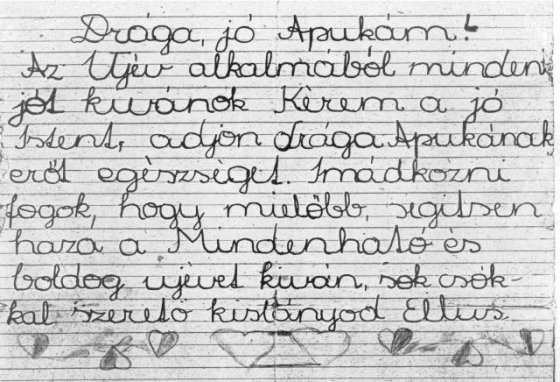 Drága, jó Apukám!
Az Ujév alkalmából minden
jót kivánok Kérem a jó
Istent, adjon drága Apukának
erőt egészséget. Imádkozni
fogok, hogy mielőbb, segitsen
haza a Mindenható és
boldog ujévet kiván, sok csók-
kal szerető kislányod Ellus.